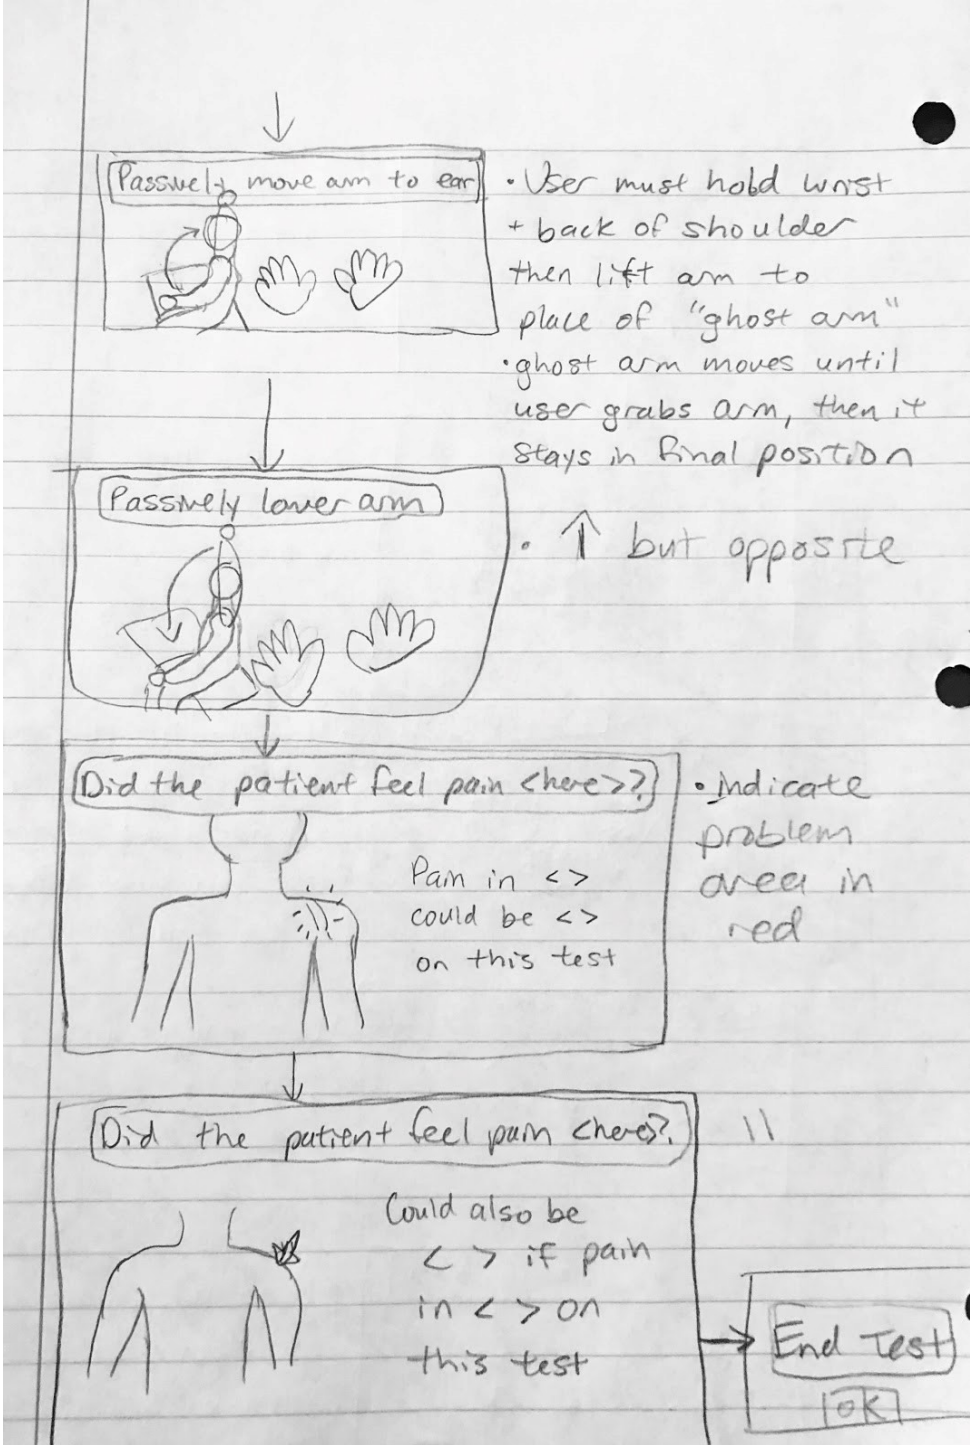 Passively move arm to ear
• User must hold wrist
+ back of shoulder
then lift arm to
place of "ghost arm"
• ghost arm moves until
user grabs arm, then it
stays in final position
Passively lower arm
• ↑ but opposite
Did the patient feel pain <here>?
• Indicate
problem
area in
red
Pain in < >
could be < >
on this test
Did the patient feel pain <here>?
11
Could also be
< > if pain
in < > on
this test
End Test
OK